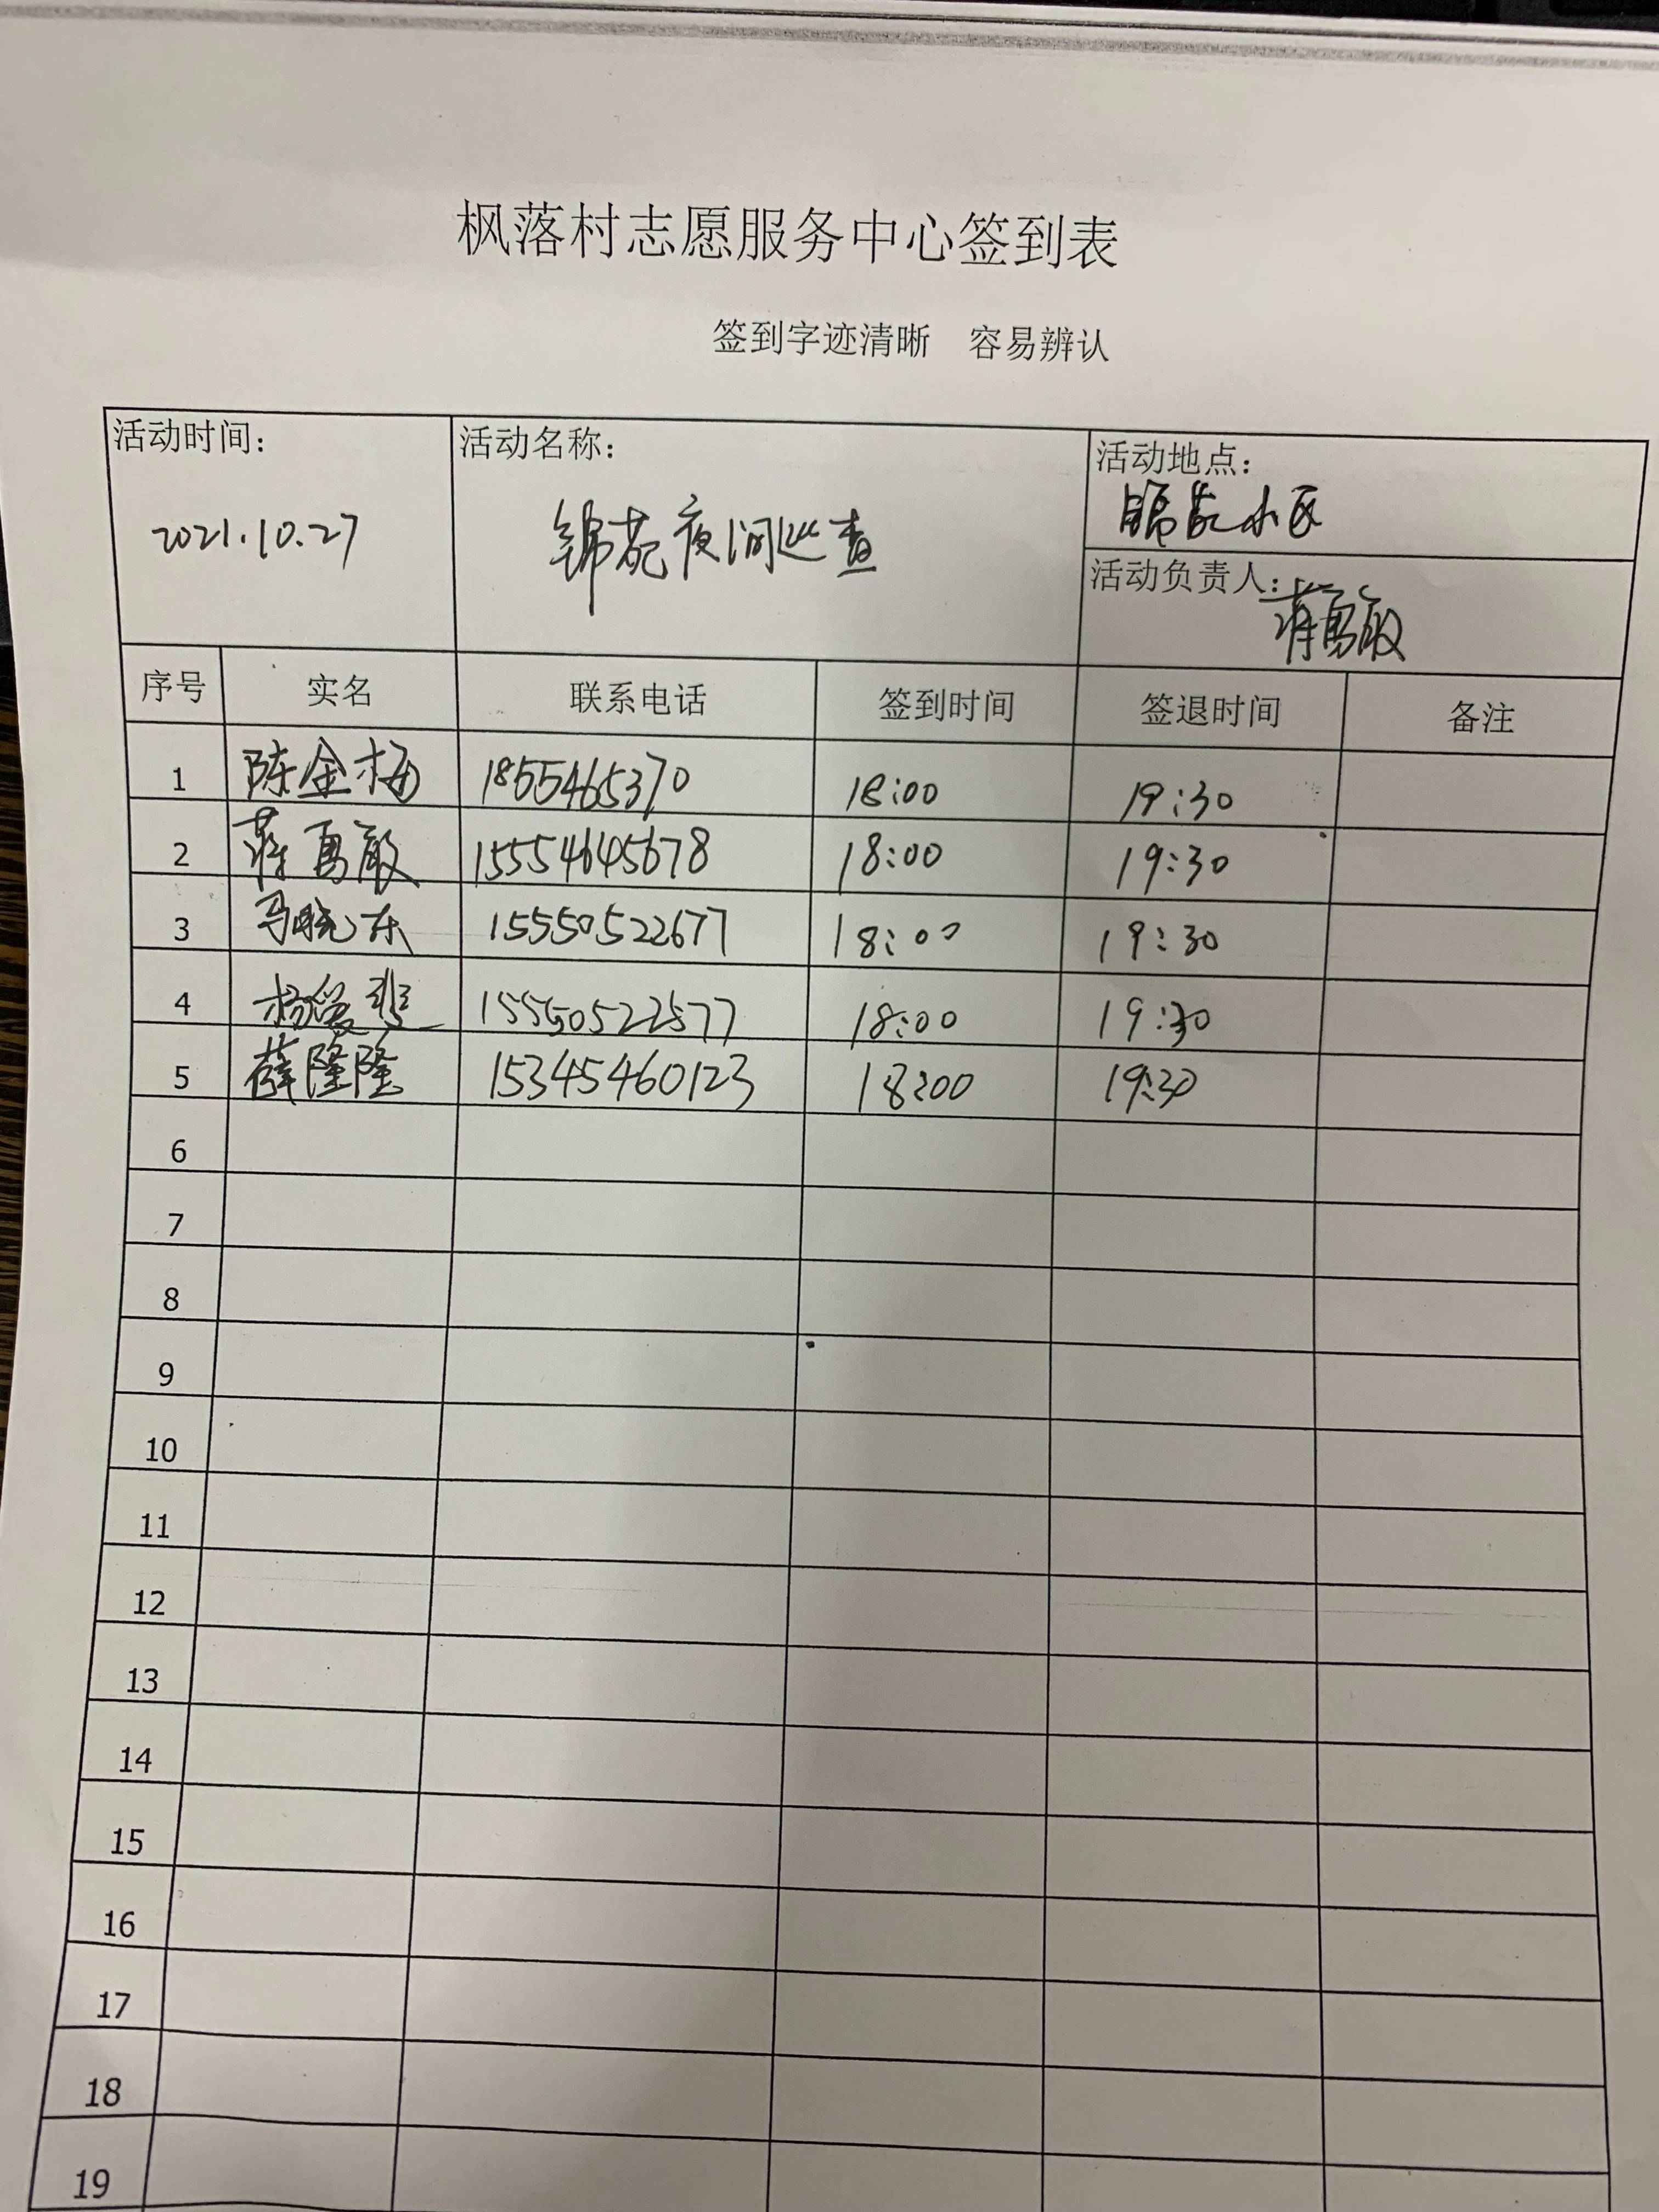 枫落村志愿服务中心签到表
签到字迹清晰 容易辨认
活动时间: 活动名称: 活动地点:
2021.10.27 锦苑夜间巡查 锦苑小区
活动负责人: 蒋勇敏
序号 实名 联系电话 签到时间 签退时间 备注
1 陈金梅 1855465370 18:00 19:30
2 蒋勇敏 15554645678 18:00 19:30
3 马晓东 15550522677 18:00 19:30
4 杨爱 15550522577 18:00 19:30
5 薛隆隆 15345460123 18:00 19:30
6
7
8
9
10
11
12
13
14
15
16
17
18
19